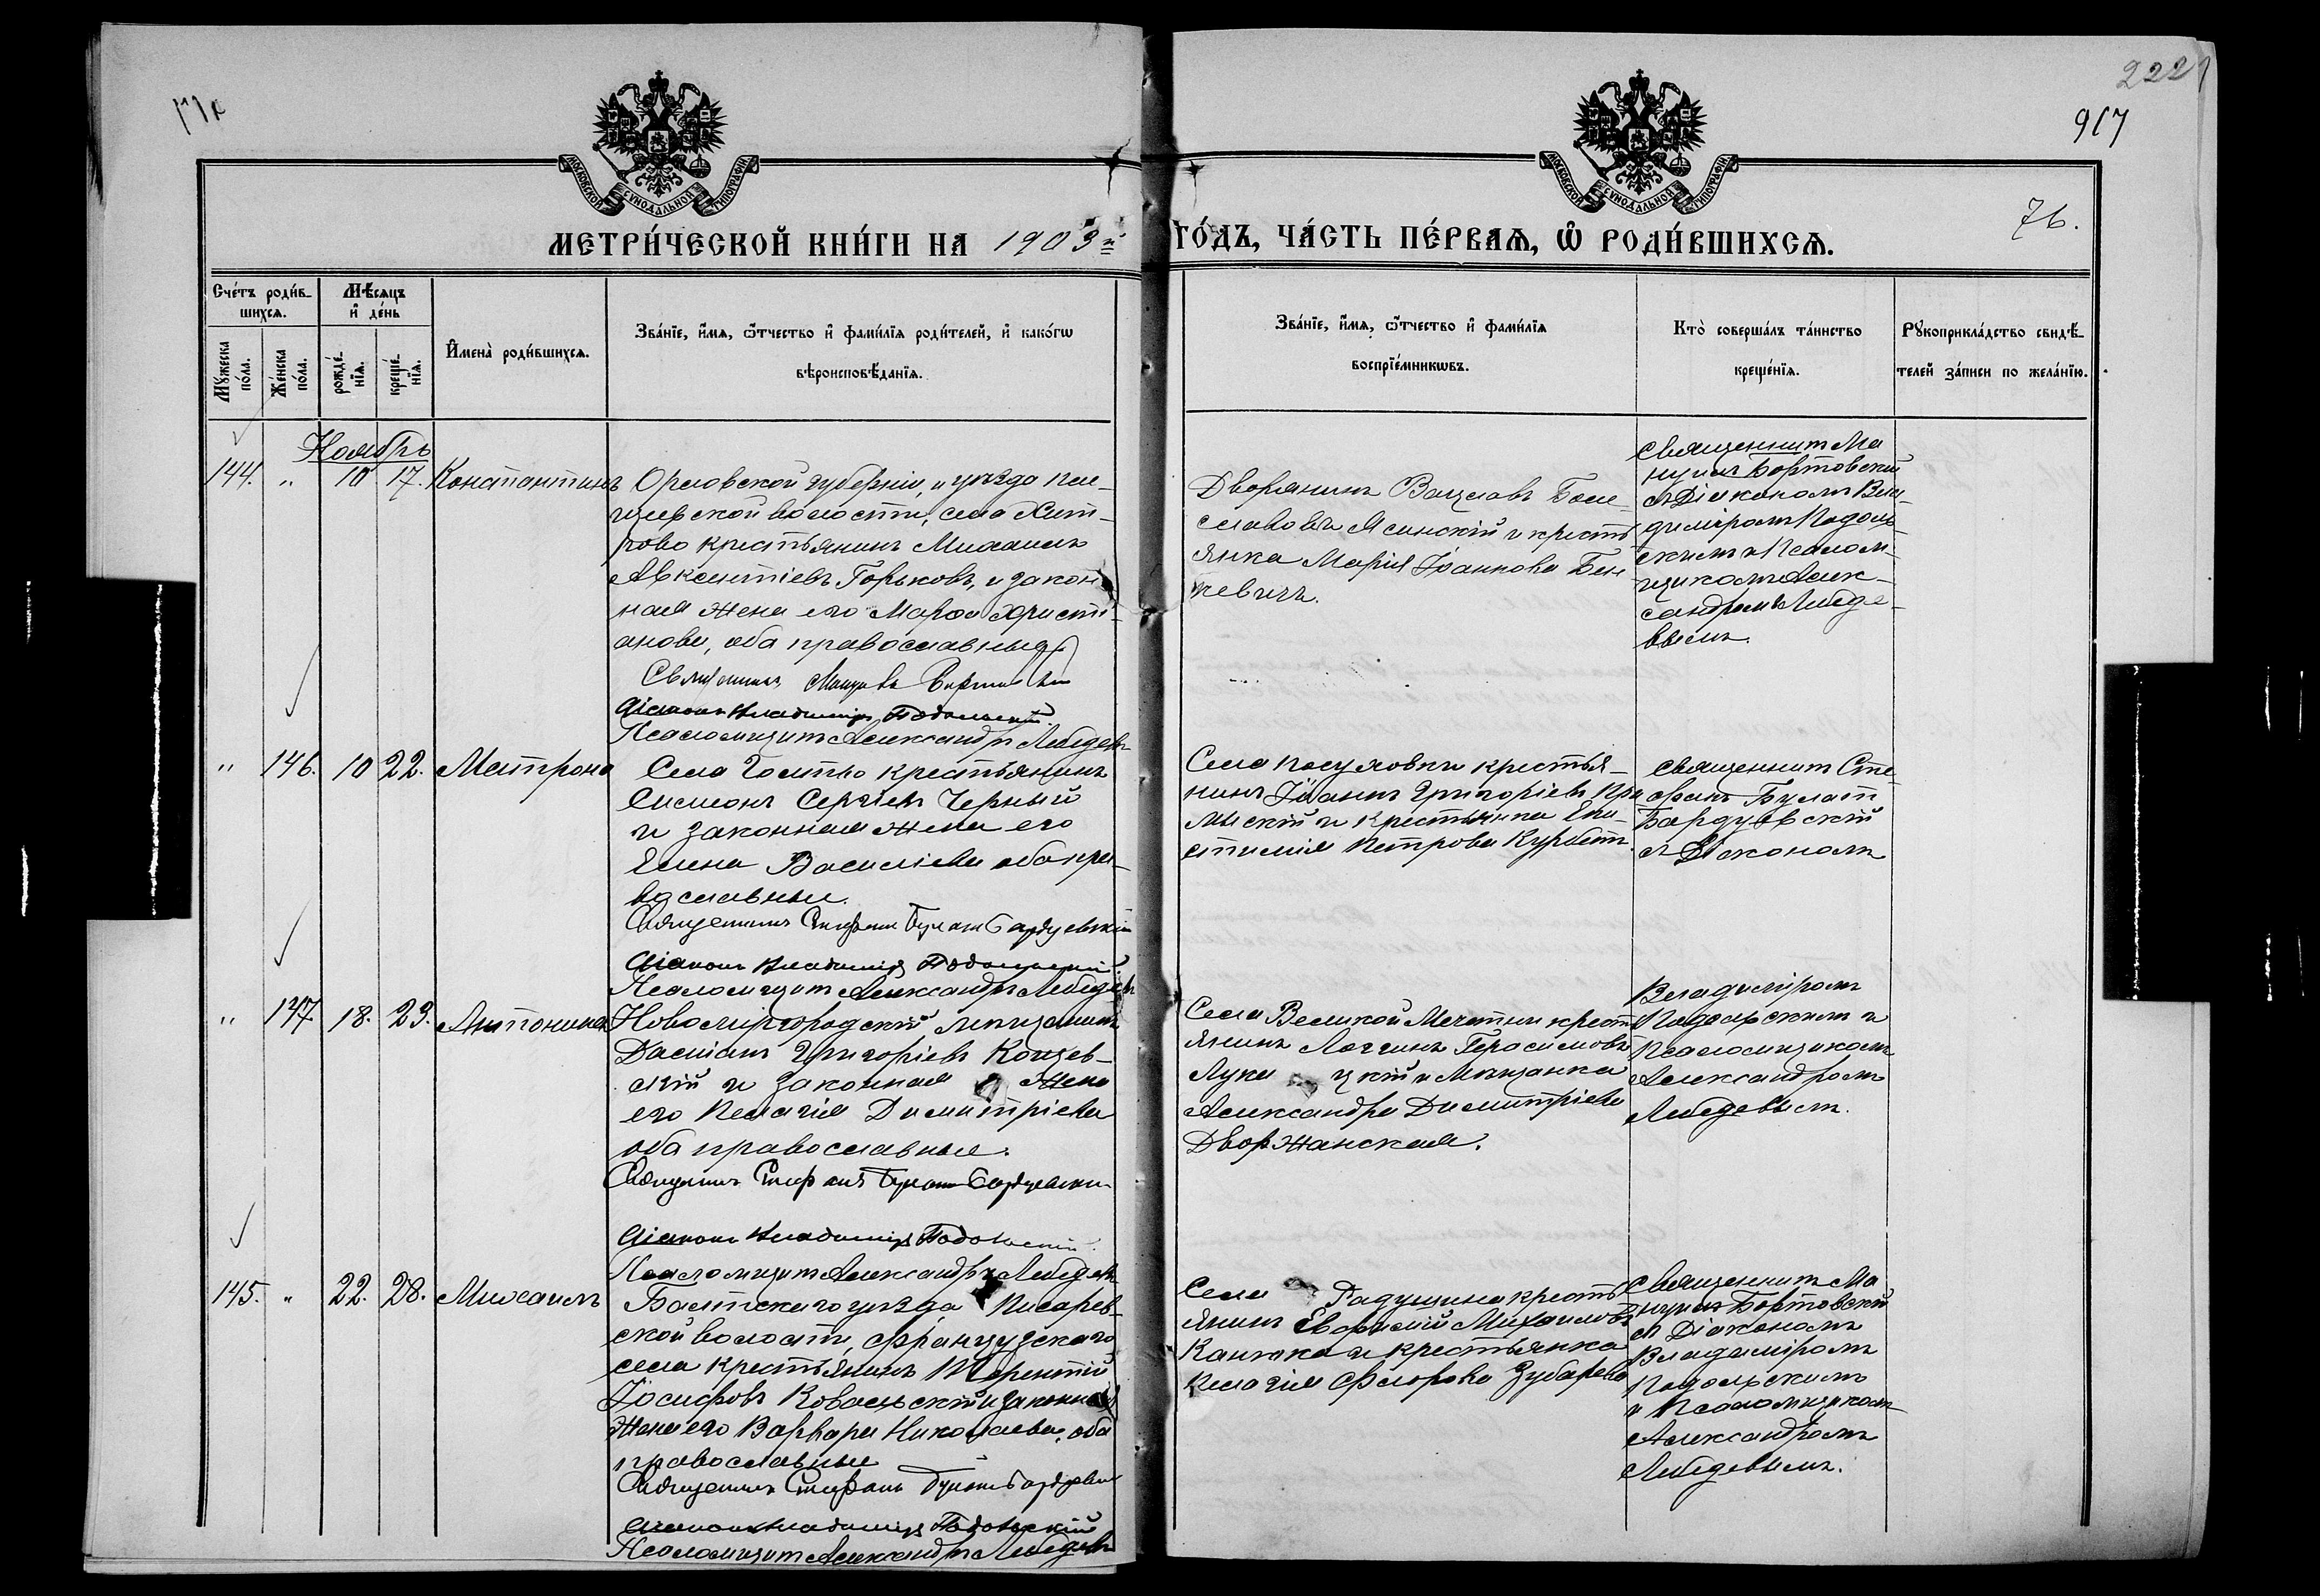 222
917
76.
МОСКОВСКОЙ СѴНОДАЛЬНОЙ ТИПОГРАФІИ
МОСКОВСКОЙ СѴНОДАЛЬНОЙ ТИПОГРАФІИ
МЕТРИ́ЧЕСКОЙ КНИ́ГИ НА 1903й ГО́ДЪ, ЧА́СТЬ ПЕ́РВАѦ, Ѡ РОДИ́ВШИХСѦ.
Сче́тъ роди́в-
шихсѧ.
Мꙋ́жеска по́ла.
Же́нска по́ла.
Мѣ́сѧцъ
и҆ де́нь
рожде́-
нїѧ.
креще́-
нїѧ.
И҆мена̀ роди́вшихсѧ.
Зва́нїе, и҆́мѧ, ѻ҆́тчество и҆ фами́лїѧ роди́телей, и҆ како́гѡ
вѣроисповѣ́данїѧ.
Зва́нїе, и҆́мѧ, ѻ҆́тчество и҆ фами́лїѧ
воспрїе́мникѡвъ.
Кто̀ соверша́лъ та́инство
креще́нїѧ.
Рꙋкоприкла́дство свидѣ́-
телей за́писи по жела́нїю.
Ноябрь
144. " 10 17. Константинъ
Орловской губерніи, и уѣзда
волости, села Хит-
рово крестьянинъ Михаилъ
Авксентіевъ Горьковъ, и закон-
ная жена его Марфа Христі-
анова, оба православные.
Священникъ
Діаконъ Владиміръ Подольскій.
Псаломщикъ Александръ Лебедевъ
Дворянинъ Вацлавъ Боле-
славовъ Ясинскій и кресть
янка Марія Іоаннова Бен
кевичъ.
Священникъ Ма
нуилъ Бортовскій
съ Діакономъ Вла-
диміромъ Подоль-
скимъ и Псалом-
щикомъ Алек-
сандромъ Лебеде-
вымъ.
" 146. 10 22. Матрона
Села Голта крестьянинъ
Симеонъ Сергіевъ Черный
и законная жена его
Елена Василіева оба пра-
вославные.
Священникъ Стефанъ Булатъ Бардуевскій
Діаконъ Владиміръ Подольскій.
Псаломщикъ Александръ Лебедевъ
Села крестья-
нинъ Іоаннъ Григоріевъ
и крестьянка Епи-
стимія Петрова
Священникъ Сте-
фанъ Булатъ
Бардуевскій
съ Діакономъ
" 147 18. 23. Антонина
Новомиргородскій мѣщанинъ
Даміанъ Григоріевъ Коцев-
скій и законная жена
его Пелагія Димитріева
оба православные.
Священникъ Стефанъ Булатъ Бардуевскій
Діаконъ Владиміръ Подольскій.
Псаломщикъ Александръ Лебедевъ
Села Великой Мечетни кресть
янинъ Логгинъ Герасимовъ
и мѣщанка
Александра Димитріева
Дворжанская.
Владиміромъ
Подольскимъ и
Псаломщикомъ
Александромъ
Лебедевымъ.
145. " 22. 28. Михаилъ
Балтскаго уѣзда, Писарев-
ской волости, Французскаго
села крестьянинъ Терентій
Іосифовъ Ковальскій и законная
жена его Варвара Николаева, оба
православные
Священникъ Стефанъ Булатъ Бардуевскій
Діаконъ Владиміръ Подольскій
Псаломщикъ Александръ Лебедевъ
Села кресть
янинъ Евфимій Михаиловъ
Канюка и крестьянка
Пелагія Флорова Зубарева
Священникъ Ма
нуилъ Бортовскій
съ Діакономъ
Владиміромъ
Подольскимъ
и Псаломщикомъ
Александромъ
Лебедевымъ.